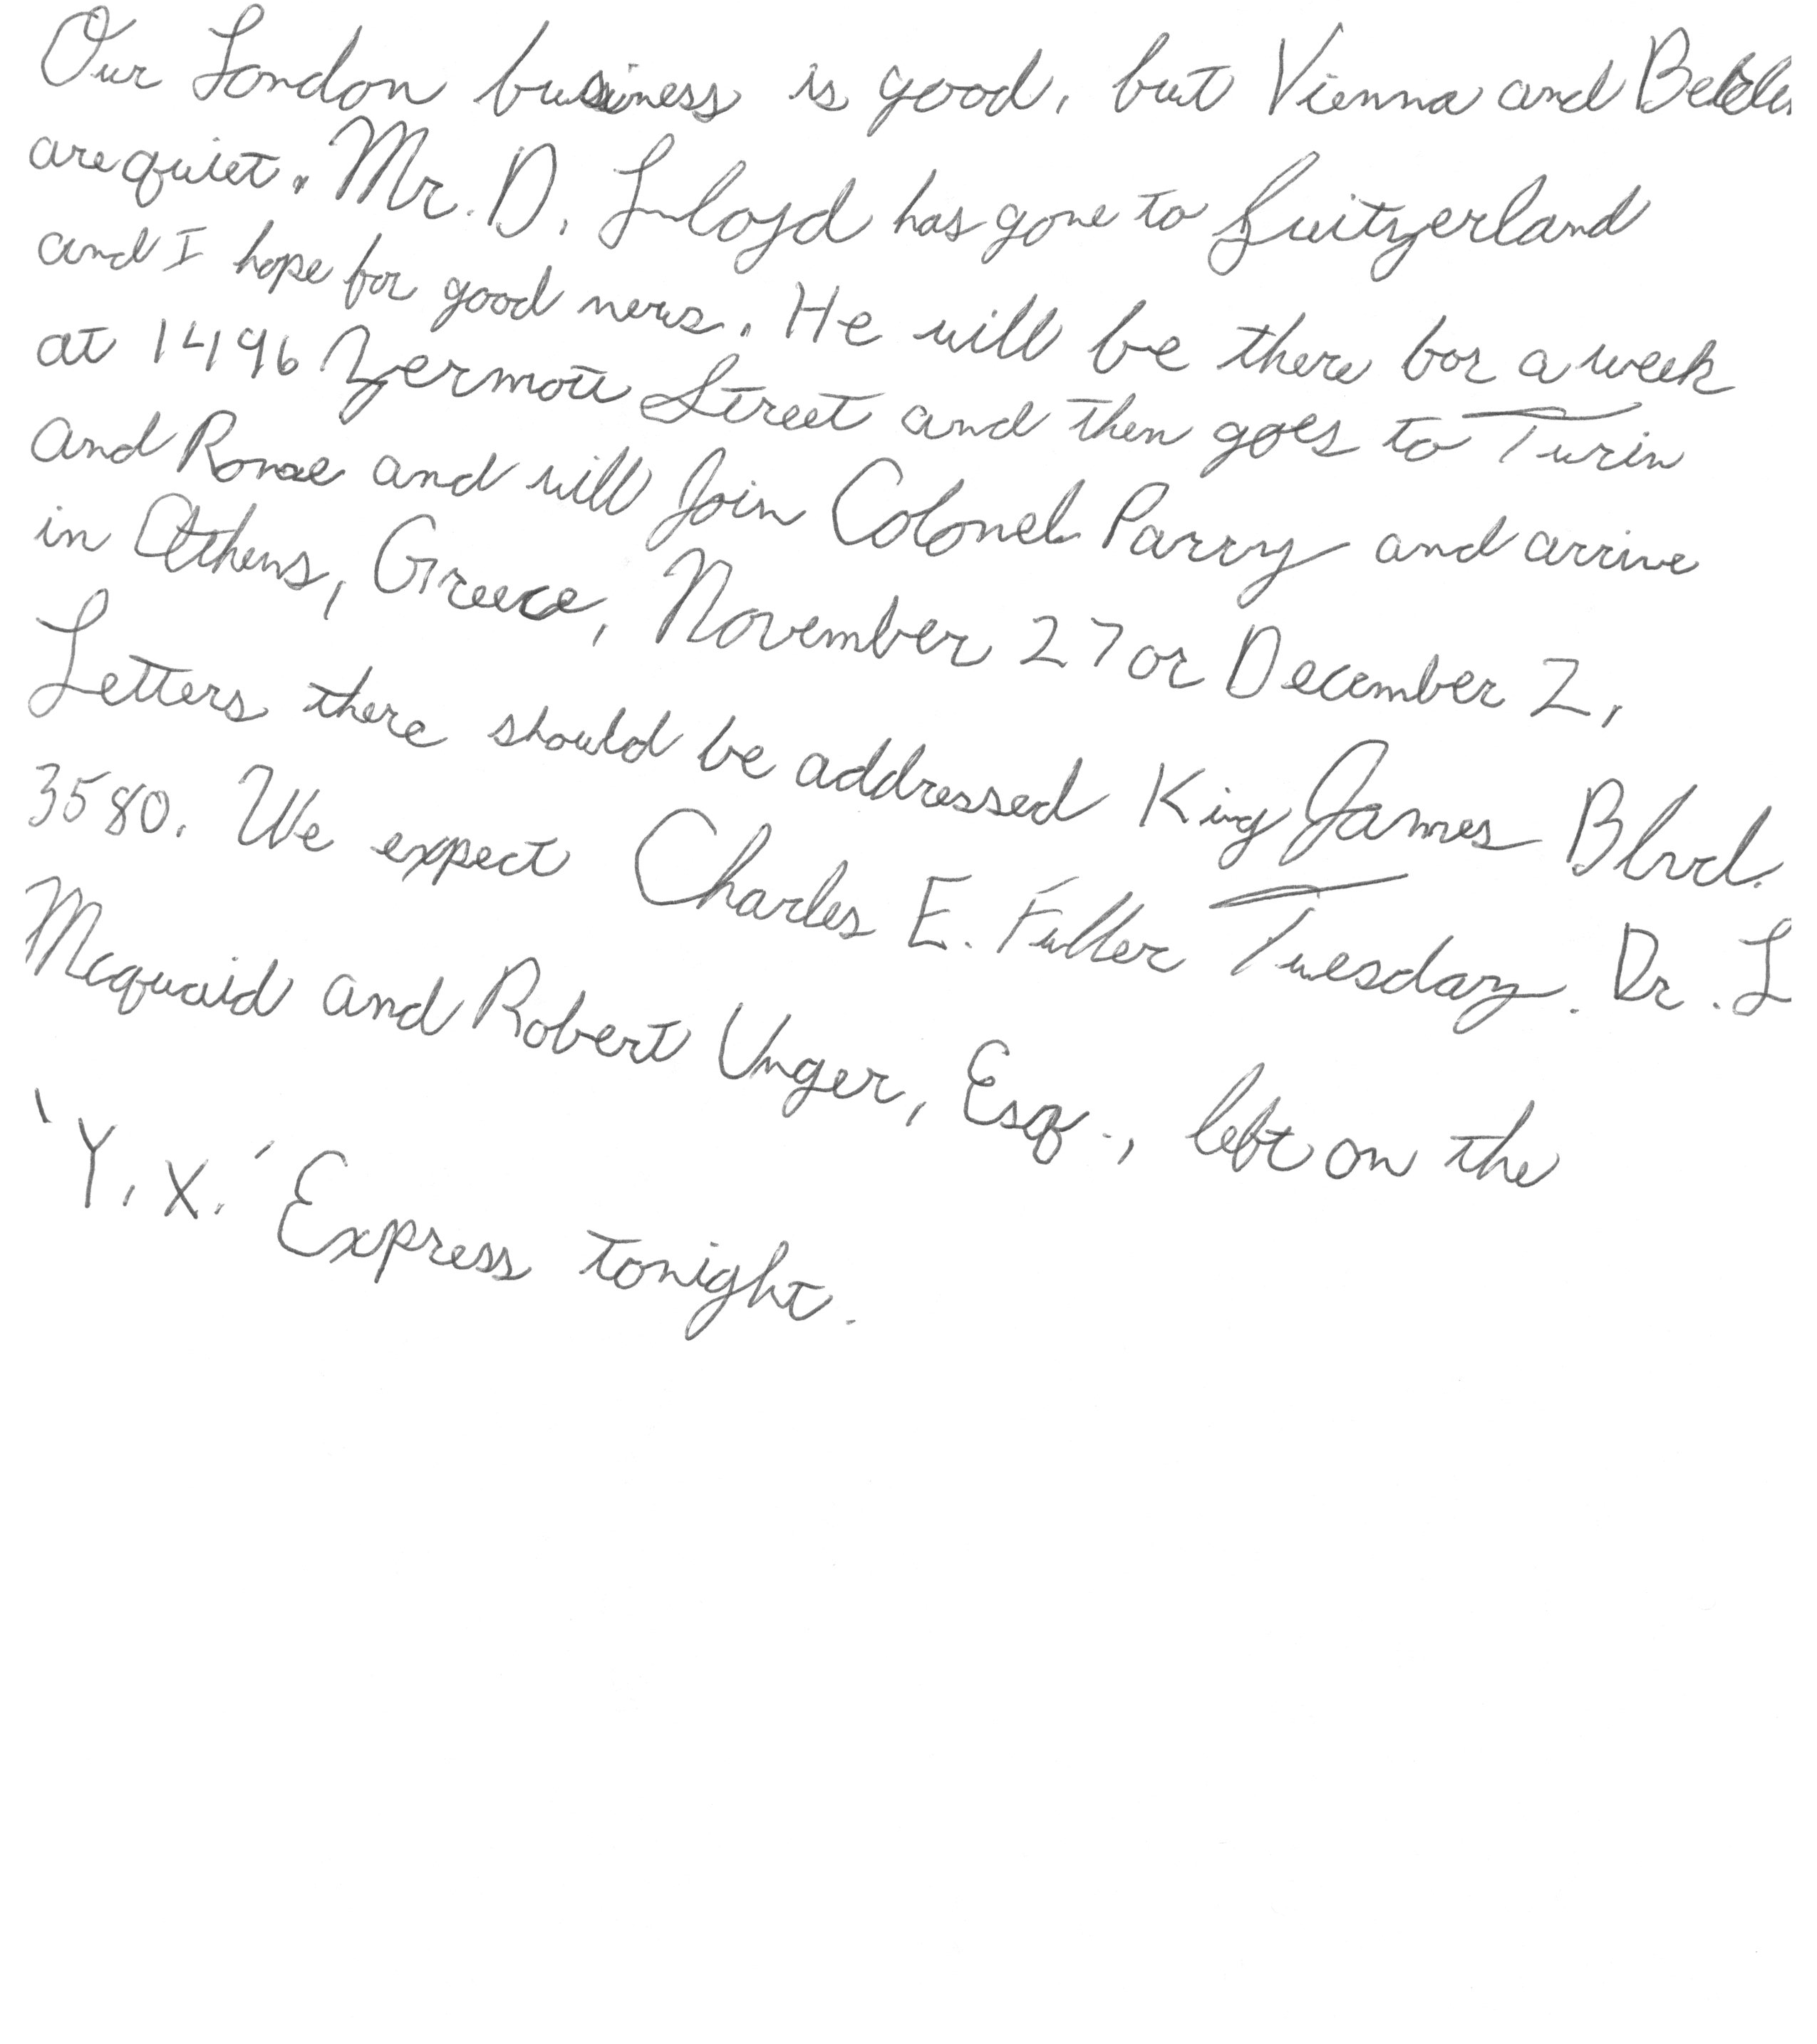 Our London business is good, but Vienna and
are quiet. Mr. D. Lloyd has gone to Switzerland
and I hope for good news. He will be there for a week
at 1496 Zermott Street and then goes to Turin
and Rome and will Join Colonel Parry and arrive
in Athens, Greece, November 27 or December 2,
Letters there should be addressed King James Blvd.
3580. We expect Charles E. Fuller Tuesday. Dr. L
Mcquaid and Robert Unger, Esq., left on the
'Y. X.' Express tonight.